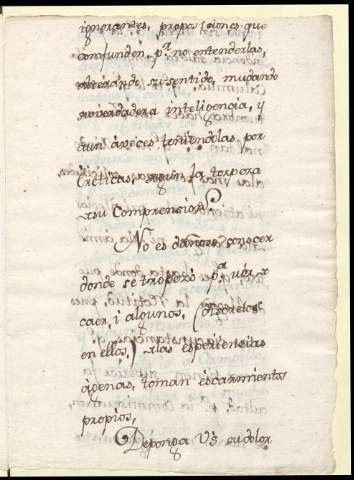 ignorantes, proposiciones que
confunden, p.ª no entenderlas,
alterando su sentido, mudando
su verdadera inteligencia, y
aun áveces teniendolas por
ereticas, segun la torpeza
su Comprension.
No es dañoso, conocer
donde se tropezó p.ª
caer, i algunos, (discretos
en ellos,) las esperiencias
agenas, toman escarmientos
propios,
Deponga VS. su dolor